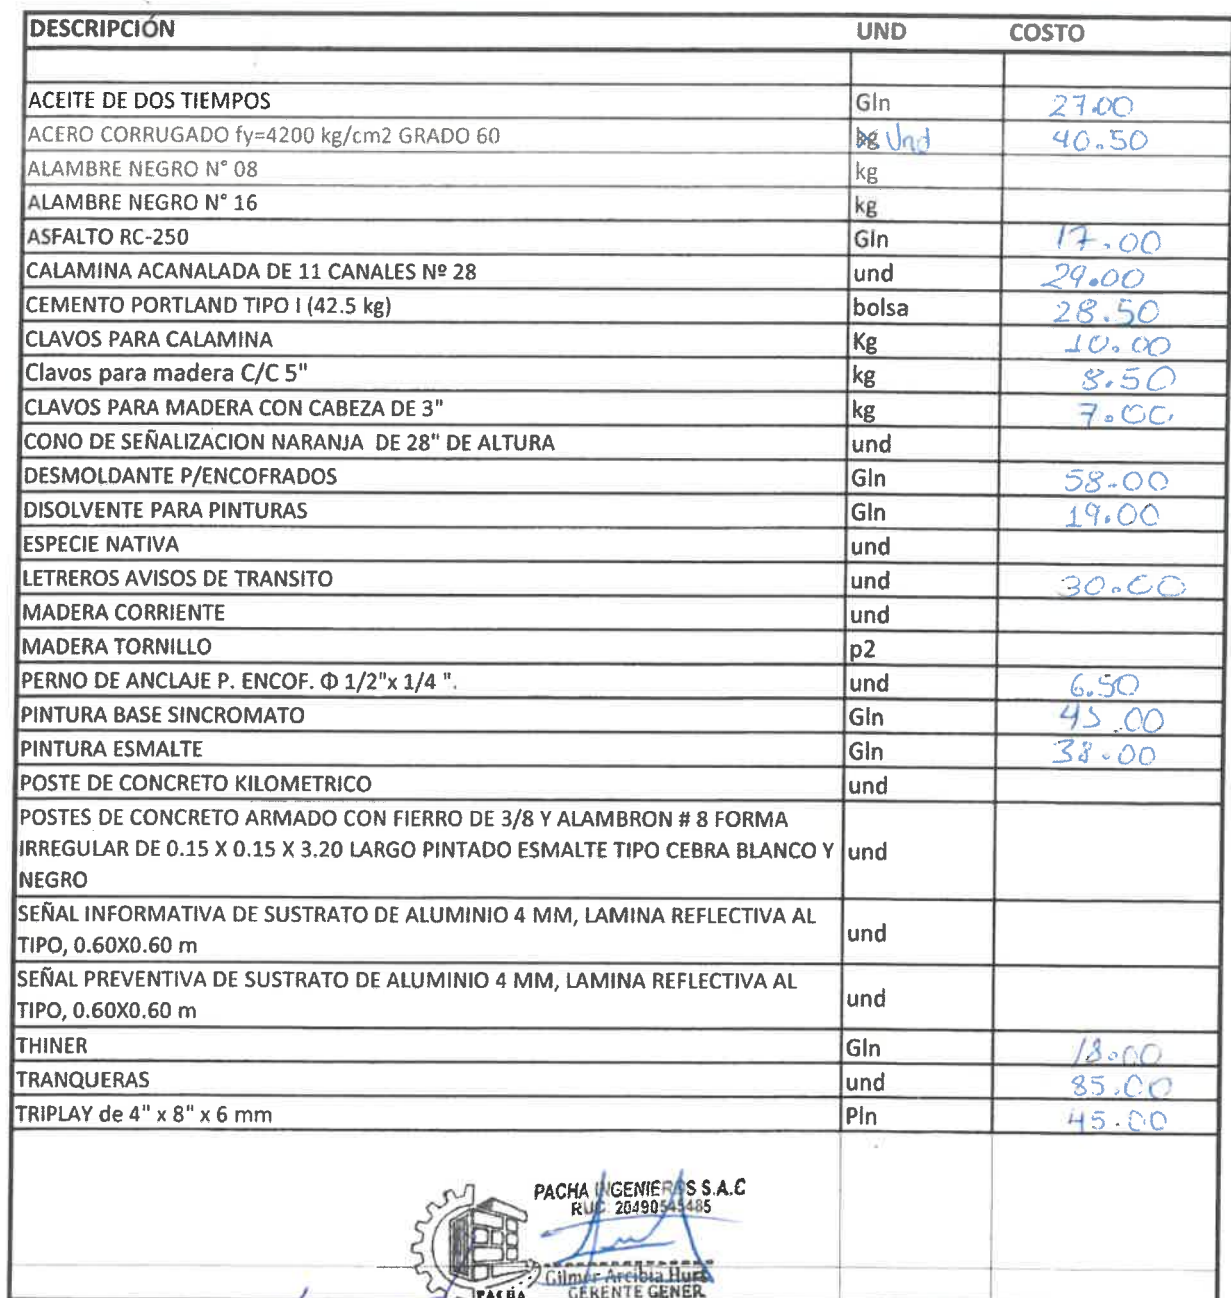 DESCRIPCIÓN UND COSTO
ACEITE DE DOS TIEMPOS Gln 27.00
ACERO CORRUGADO fy=4200 kg/cm2 GRADO 60 kg Und 40.50
ALAMBRE NEGRO N° 08 kg
ALAMBRE NEGRO N° 16 kg
ASFALTO RC-250 Gln 17.00
CALAMINA ACANALADA DE 11 CANALES Nº 28 und 29.00
CEMENTO PORTLAND TIPO I (42.5 kg) bolsa 28.50
CLAVOS PARA CALAMINA Kg 10.00
Clavos para madera C/C 5" kg 8.50
CLAVOS PARA MADERA CON CABEZA DE 3" kg 7.00
CONO DE SEÑALIZACION NARANJA DE 28" DE ALTURA und
DESMOLDANTE P/ENCOFRADOS Gln 58-00
DISOLVENTE PARA PINTURAS Gln 19.00
ESPECIE NATIVA und
LETREROS AVISOS DE TRANSITO und 30.00
MADERA CORRIENTE und
MADERA TORNILLO p2
PERNO DE ANCLAJE P. ENCOF. Φ 1/2"x 1/4 ". und 6.50
PINTURA BASE SINCROMATO Gln 45.00
PINTURA ESMALTE Gln 38.00
POSTE DE CONCRETO KILOMETRICO und
POSTES DE CONCRETO ARMADO CON FIERRO DE 3/8 Y ALAMBRON # 8 FORMA
IRREGULAR DE 0.15 X 0.15 X 3.20 LARGO PINTADO ESMALTE TIPO CEBRA BLANCO Y und
NEGRO
SEÑAL INFORMATIVA DE SUSTRATO DE ALUMINIO 4 MM, LAMINA REFLECTIVA AL
TIPO, 0.60X0.60 m und
SEÑAL PREVENTIVA DE SUSTRATO DE ALUMINIO 4 MM, LAMINA REFLECTIVA AL
TIPO, 0.60X0.60 m und
THINER Gln 18.00
TRANQUERAS und 85.00
TRIPLAY de 4" x 8" x 6 mm Pln 45.00
PACHA INGENIEROS S.A.C
RUC: 20490545485
Gilmer Arcibia
GERENTE GENER
PACHA